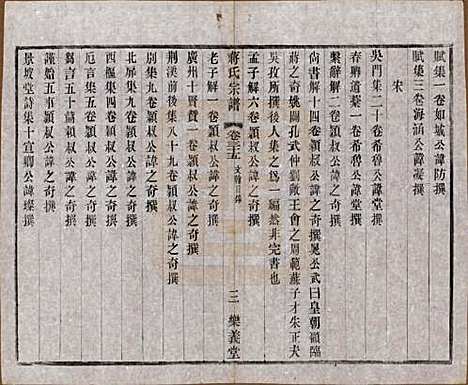 賦集一卷如城公諱防撰
賦集三卷海涵公諱凝撰
宋
吳門集二十卷希魯公諱堂撰
春卿遺藁一卷希魯公諱堂撰
繫辭解二卷穎叔公諱之奇撰
尙書解十四卷穎叔公諱之奇撰晁公武曰皇朝顧臨
蔣之奇姚闢孔武仲劉敞王會之周範蘇子才朱正夫
吳孜所撰後人集之爲一編然非完書也
孟子解六卷穎叔公諱之奇撰
蔣氏宗譜
卷三十五
三
樂義堂
老子解一卷穎叔公諱之奇撰
廣州十賢贊一卷穎叔公諱之奇撰
荆溪前後集八十九卷穎叔公諱之奇撰
別集九卷穎叔公諱之奇撰
北扉集九卷穎叔公諱之奇撰
西樞集四卷穎叔公諱之奇撰
卮言集五卷穎叔公諱之奇撰
芻言五十篇穎叔公諱之奇撰
謹始五事穎叔公諱之奇撰
景坡堂詩集十宣卿公諱璨撰